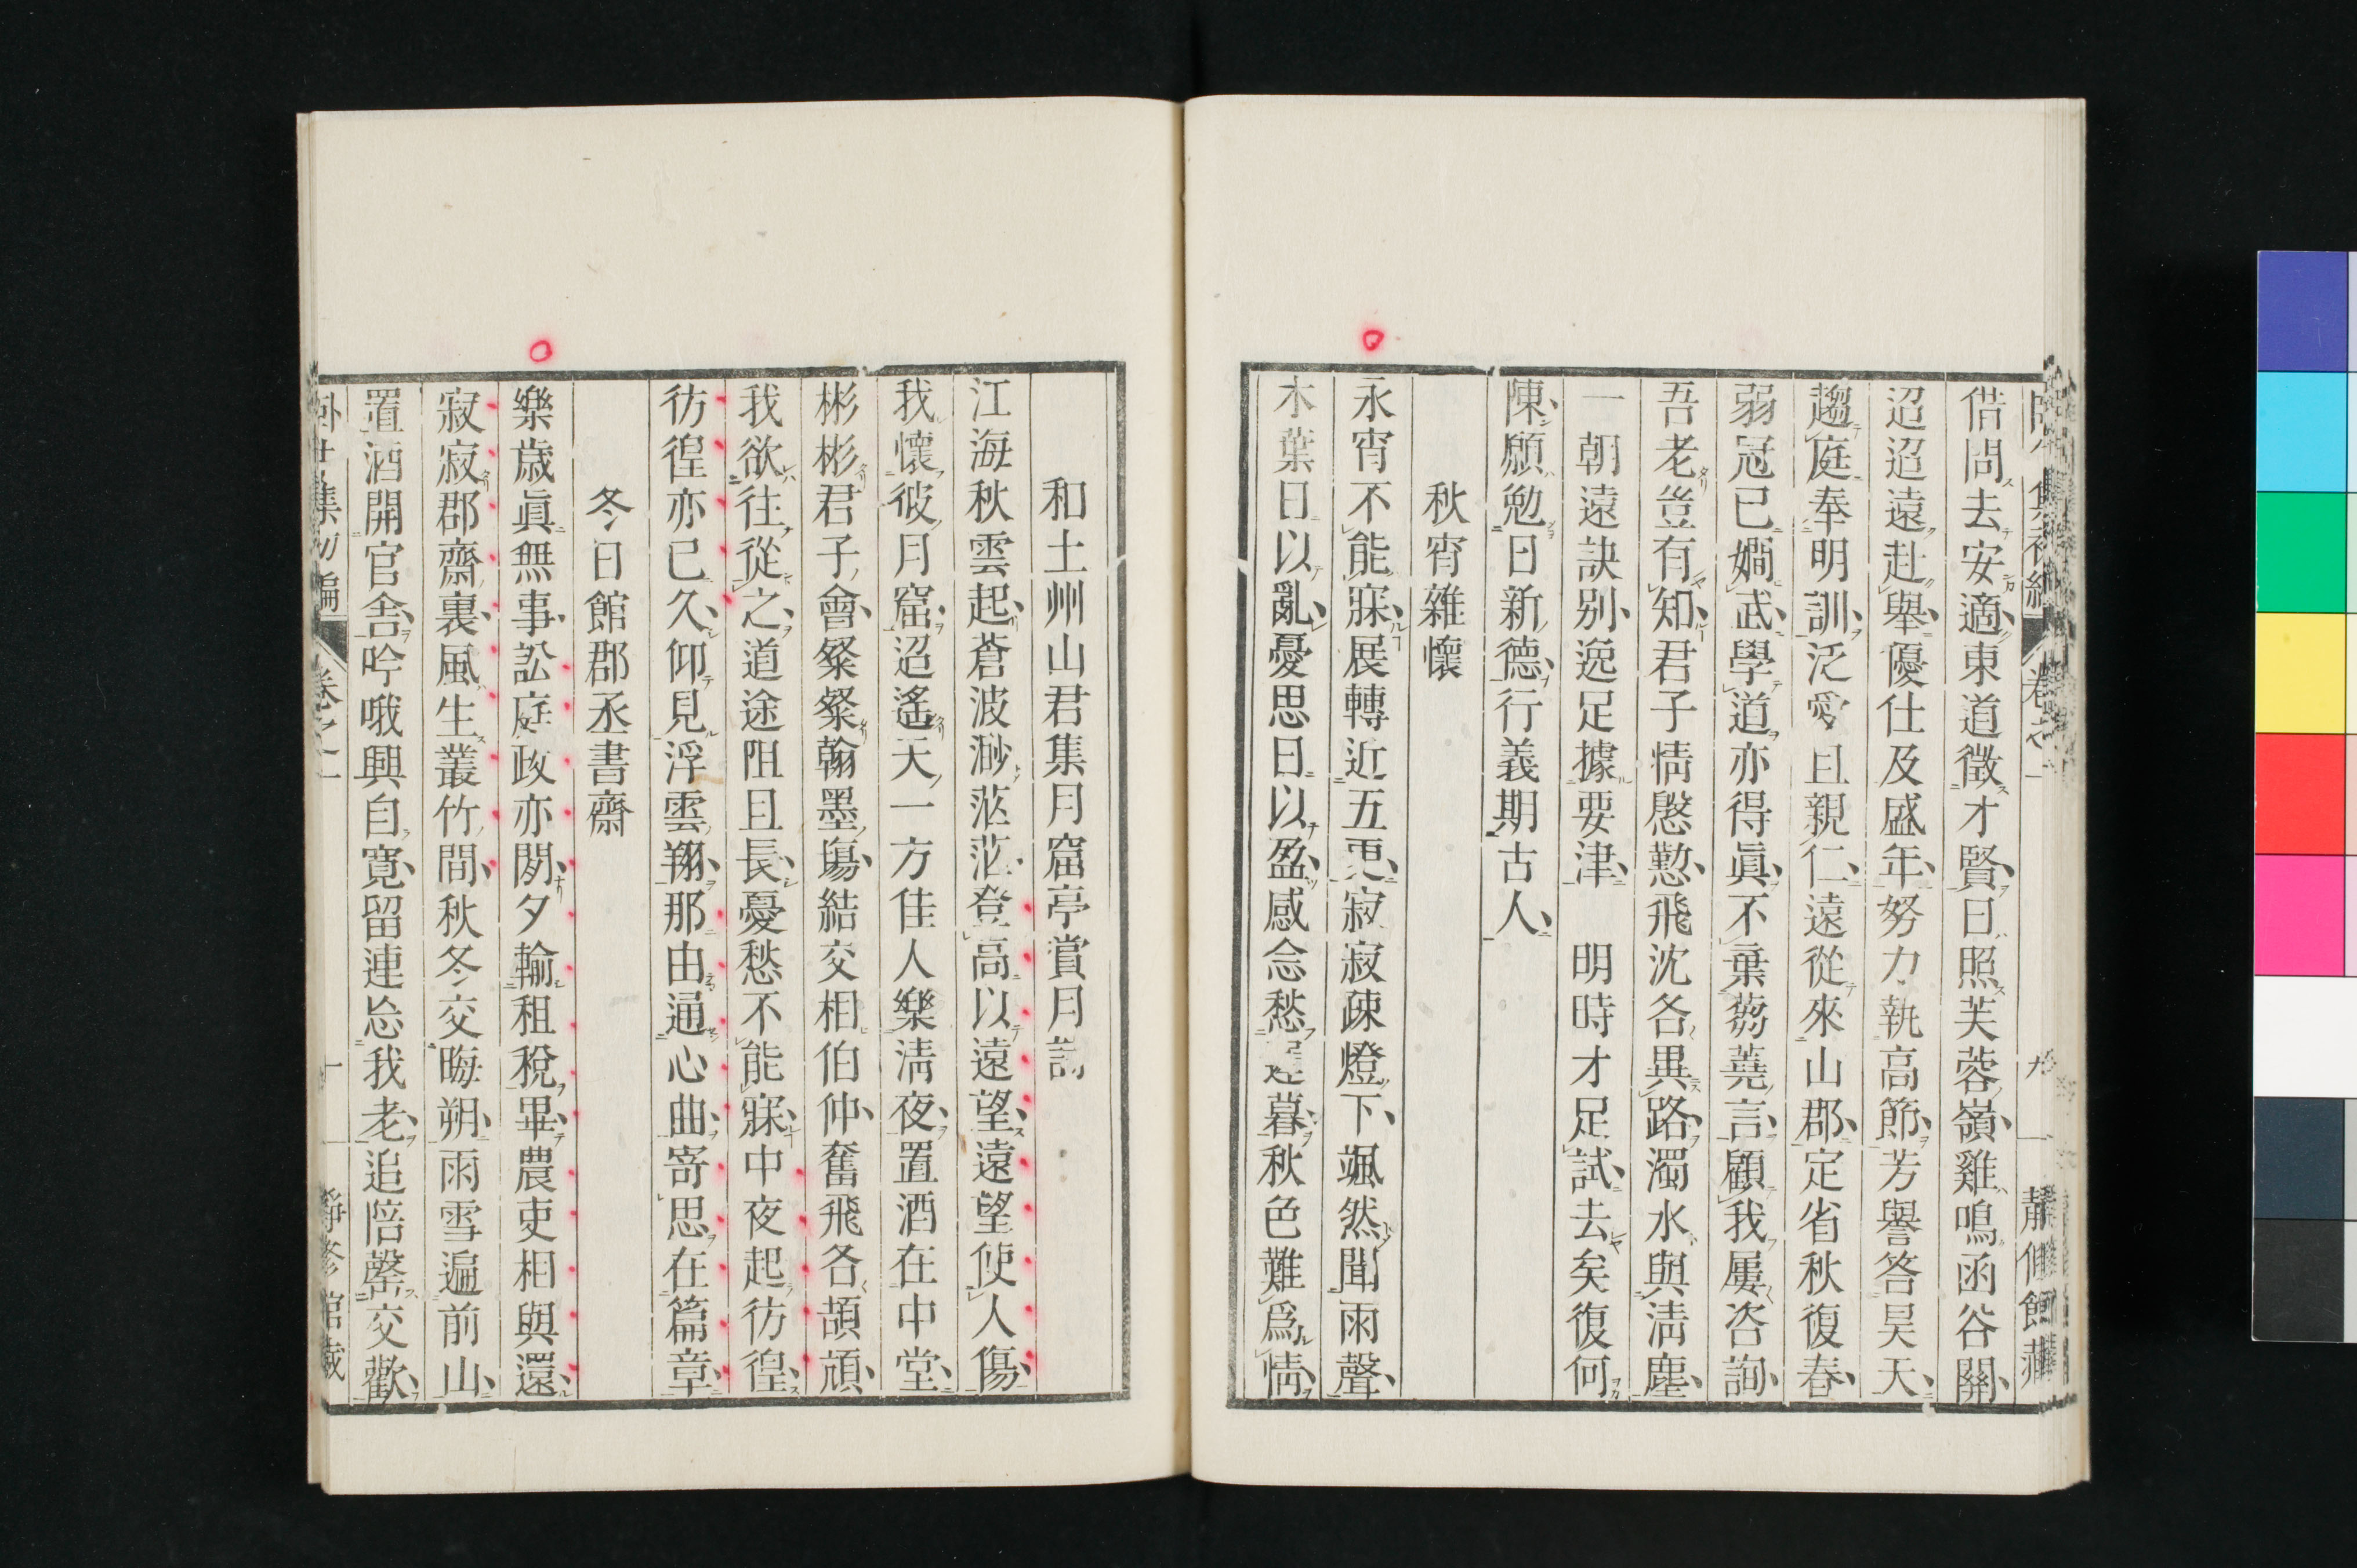 借問去安適東道徵才賢日照芙蓉嶺雞鳴函谷關
迢迢遠赴舉優仕及盛年努力執高節芳譽答昊天
趨庭奉明訓泛愛且親仁遠從來山郡定省秋復春
弱冠已嫺武學道亦得眞不棄蒭蕘言顧我屢咨詢
吾老豈有知君子情慇懃飛沈各異路濁水與淸塵
一朝遠訣別逸足據要津　明時才足試去矣復何
陳願勉日新德行義期古人
秋宵雜懷
永宵不能寐展轉近五更寂寂疎燈下颯然聞雨聲
木葉日以亂憂思日以盈感念愁暮秋色難爲情
和土州山君集月窟亭賞月
江海秋雲起蒼波渺茫茫登高以遠望遠望使人傷
我懷彼月窟迢遙天一方佳人樂淸夜置酒在中堂
彬彬君子會粲粲翰墨場結交相伯仲奮飛各頡頏
我欲往從之道途阻且長憂愁不能寐中夜起彷徨
彷徨亦已久仰見浮雲翔那由通心曲寄思在篇章
冬日館郡丞書齋
樂歲眞無事訟庭政亦閑夕輸租稅畢農吏相與還
寂寂郡齋裏風生叢竹間秋冬交晦朔雨雪遍前山
置酒開官舍吟哦興自寬留連忘我老追陪罄交歡
集初編　卷之一　十　靜修館藏